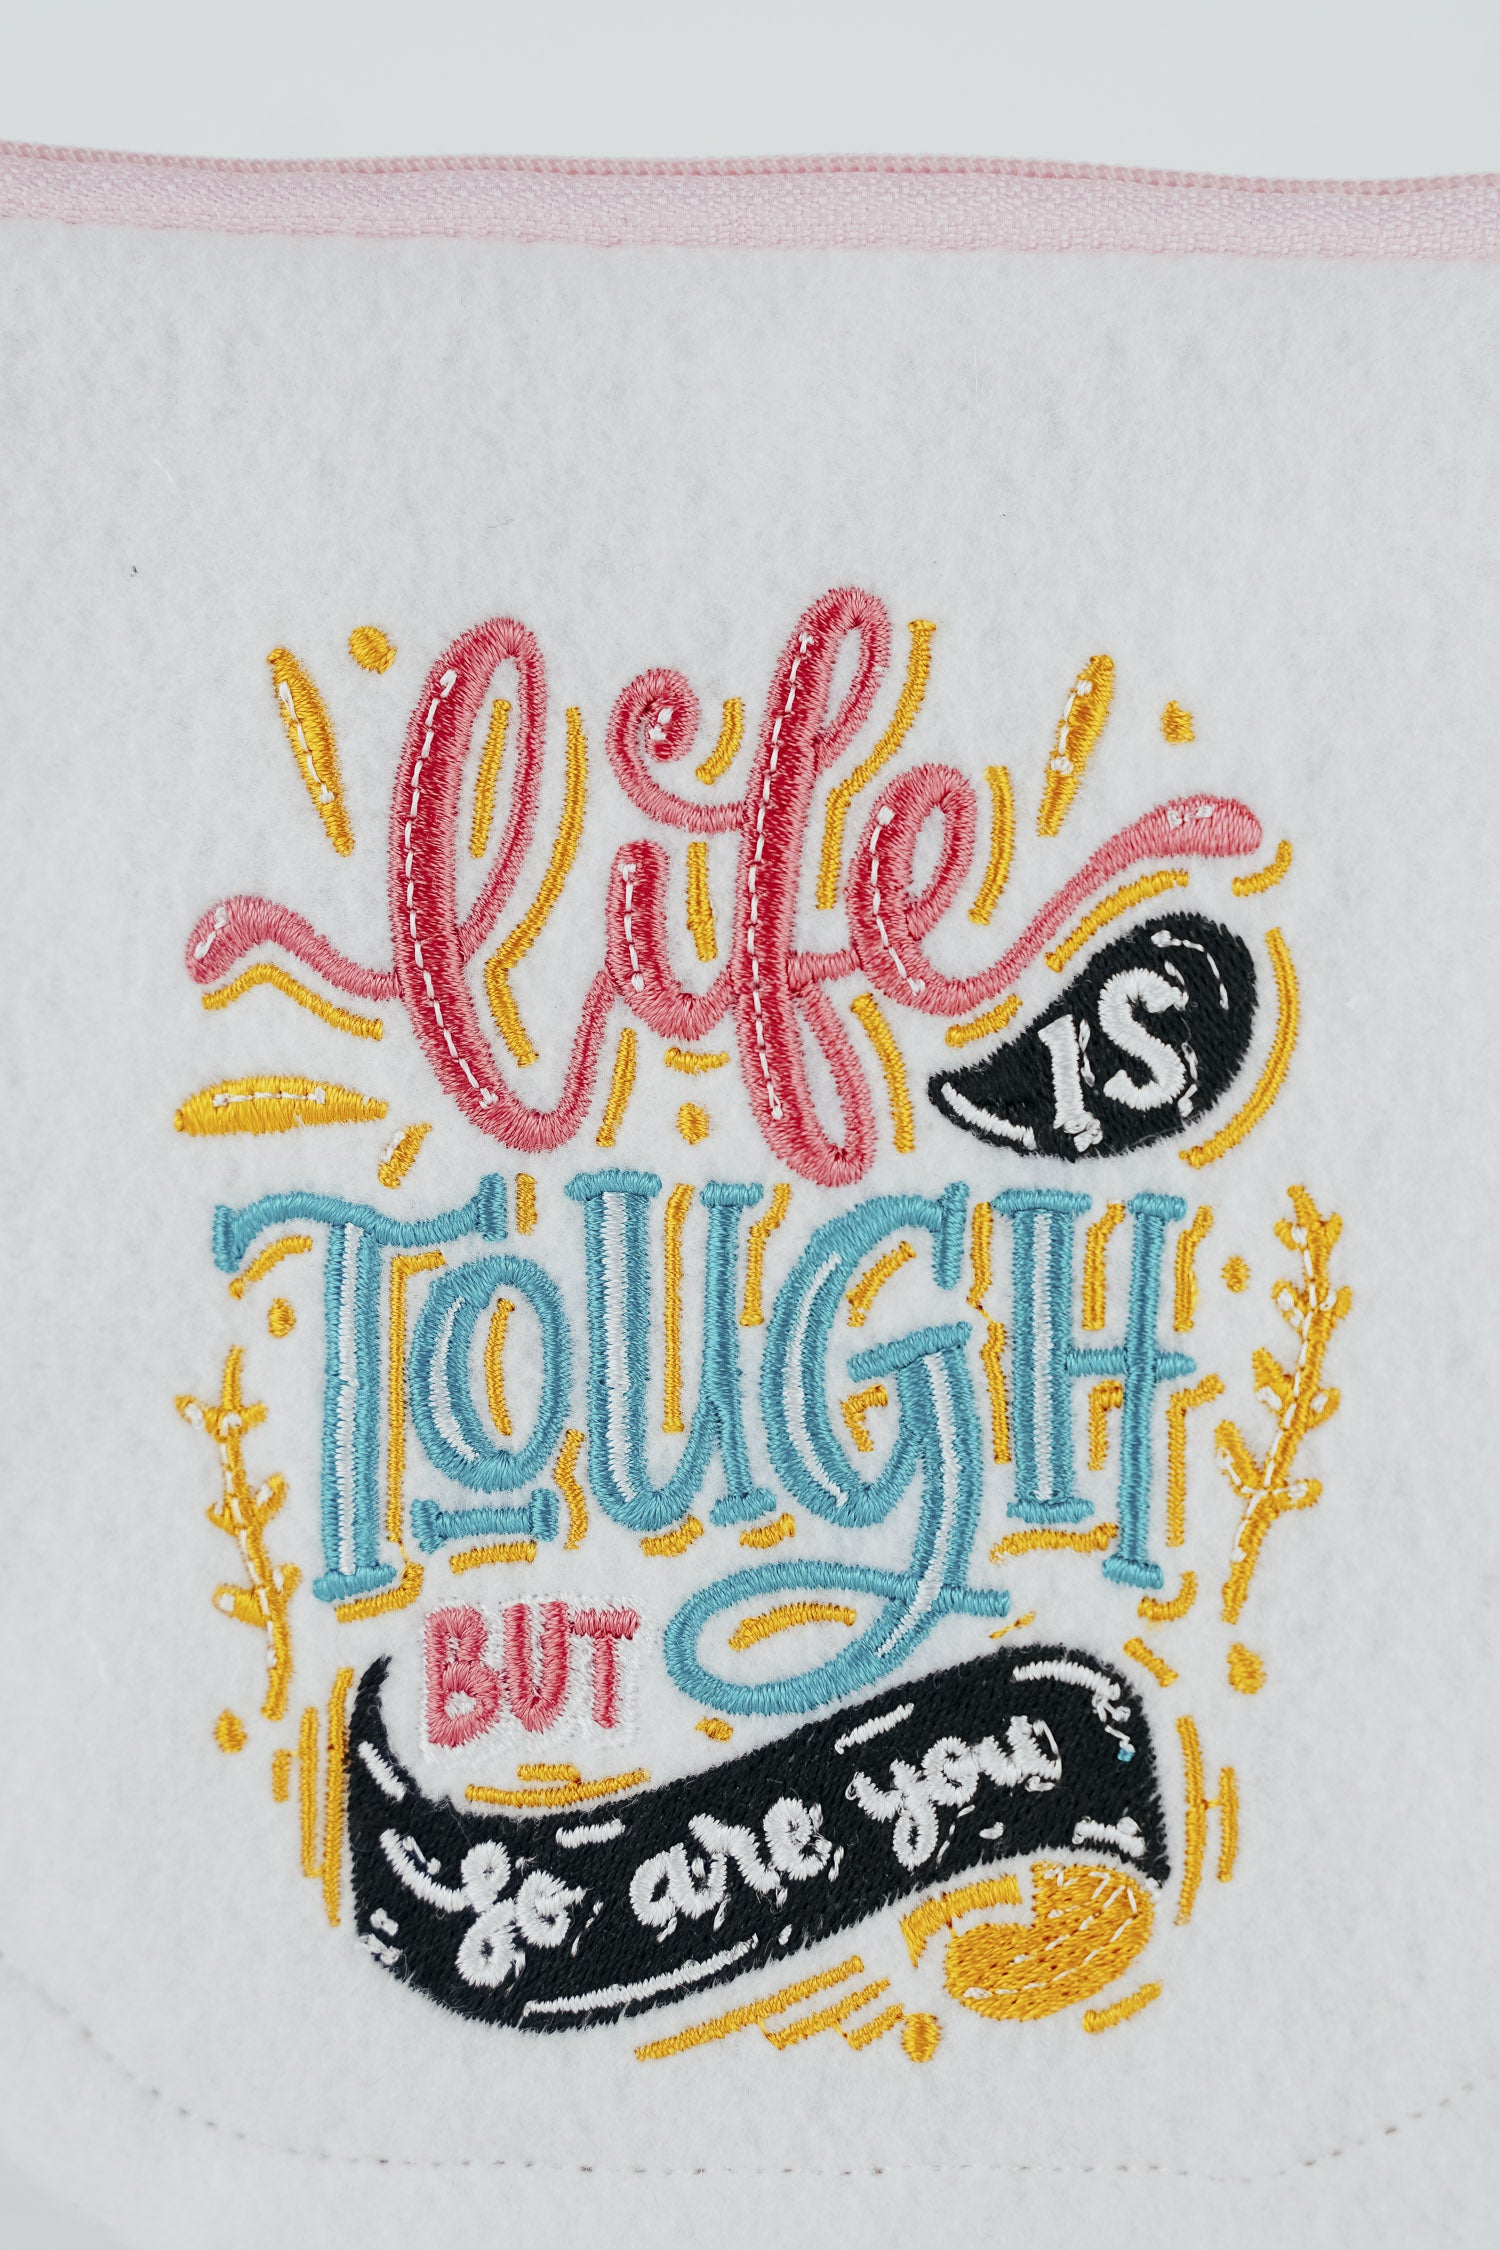 life
IS
TOUGH
BUT
So are you